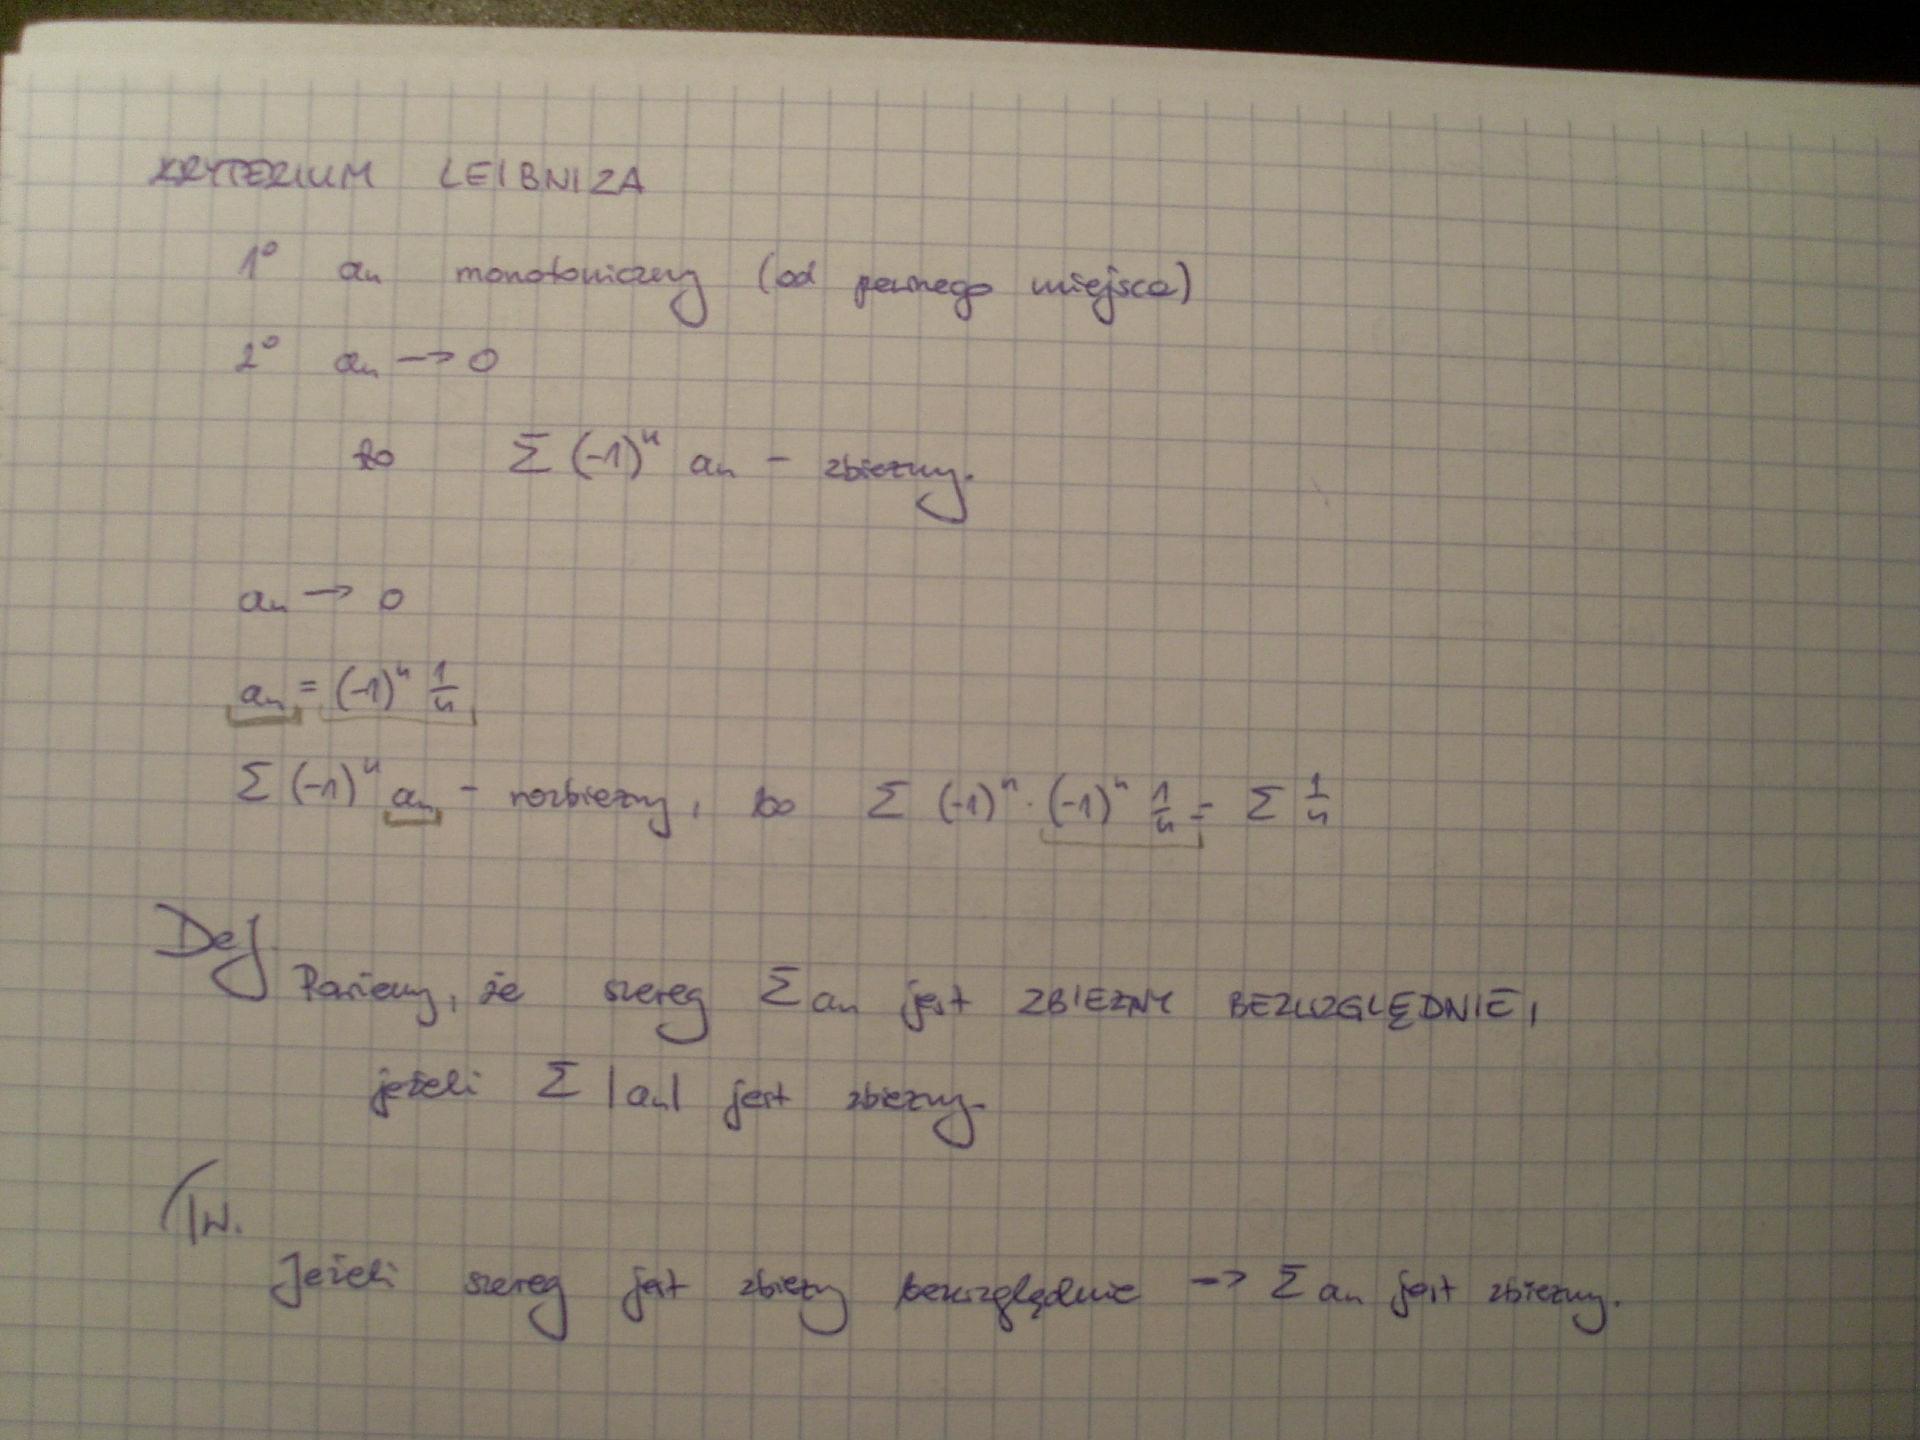 KRYTERIUM LEIBNIZA
1° an monotoniczny (od pewnego miejsca)
2° an → 0
to Σ (-1)ⁿ an - zbieżny.
an → 0
an = (-1)ⁿ 1/n
Σ (-1)ⁿ an - rozbieżny, bo Σ (-1)ⁿ · (-1)ⁿ 1/n = Σ 1/n
Def
Powiemy, że szereg Σ an jest ZBIEŻNY BEZWZGLĘDNIE,
jeżeli Σ |an| jest zbieżny.
Tw.
Jeżeli szereg jest zbieży bezwzględnie → Σ an jest zbieżny.